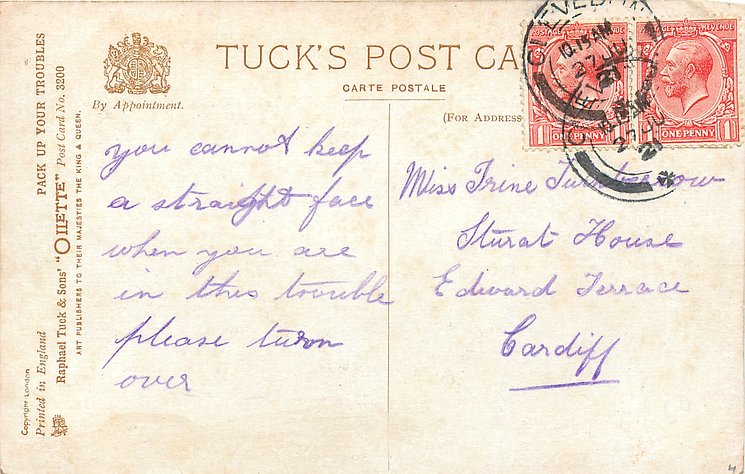 PACK UP YOUR TROUBLES
Raphael Tuck & Sons' "OILETTE" Post Card No. 3200
ART PUBLISHERS TO THEIR MAJESTIES THE KING & QUEEN.
Copyright London
Printed in England
By Appointment.
TUCK'S POST CA
CARTE POSTALE
(For Address
POSTAGE
ONE PENNY
1
ONE PENNY
1
CLEVEDON
10.15 AM
27 JU
you cannot keep
a straight face
when you are
in this trouble
please turn
over
Miss Irine
Sturat House
Edward Terrace
Cardiff